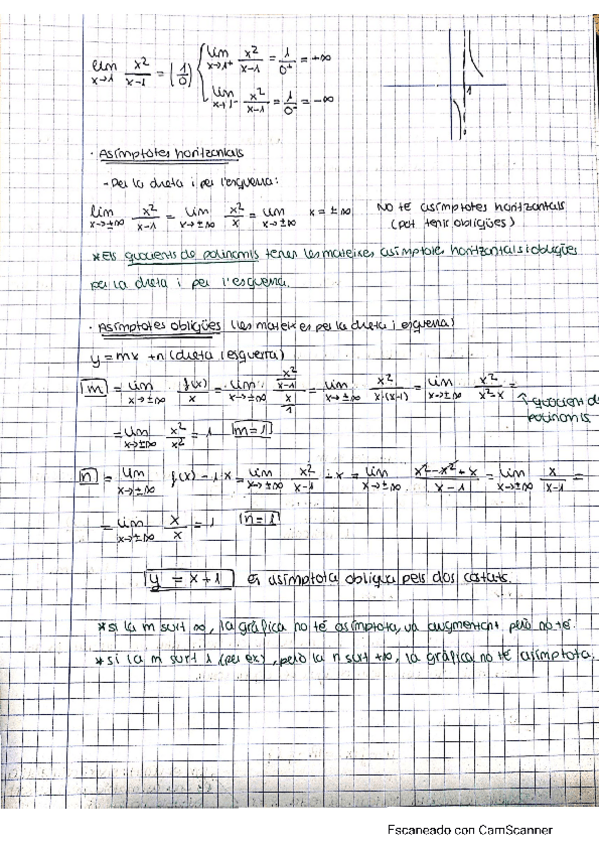 lim x→1 x²/x-1 = (1/0) { lim x→1⁺ x²/x-1 = 1/0⁺ = +∞
lim x→1⁻ x²/x-1 = 1/0⁻ = -∞
1
· Asímptotes horitzontals
- Per la dreta i per l'esquerra:
lim x→±∞ x²/x-1 = lim x→±∞ x²/x = lim x→±∞ x = ±∞ NO té asímptotes horitzontals
(pot tenir obliqües)
*Els quocients de polinomis tenen les mateixes asímptotes horitzontals i obliqües
per la dreta i per l'esquerra.
· Asímptotes obliqües (les mateixes per la dreta i esquerra)
y = mx + n (dreta i esquerra)
m = lim x→±∞ f(x)/x = lim x→±∞ (x²/x-1)/(x/1) = lim x→±∞ x²/x·(x-1) = lim x→±∞ x²/x²-x =
↑ quocient de
polinomis
= lim x→±∞ x²/x² = 1 m=1
n = lim x→±∞ f(x) - 1·x = lim x→±∞ x²/x-1 - x = lim x→±∞ x²-x²+x/x-1 = lim x→±∞ x/x-1 =
= lim x→±∞ x/x = 1 n=1
y = x+1 és asímptota obliqua pels dos costats.
*si la m surt ∞, la gràfica no té asímptota, va augmentant però no té.
*si la m surt 1 (per ex), però la n surt +∞, la gràfica no té asímptota.
Escaneado con CamScanner